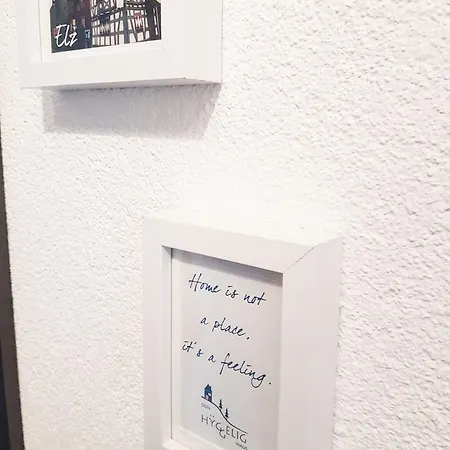 Elz
Home is not
a place,
it's a feeling.
HYGGELIG